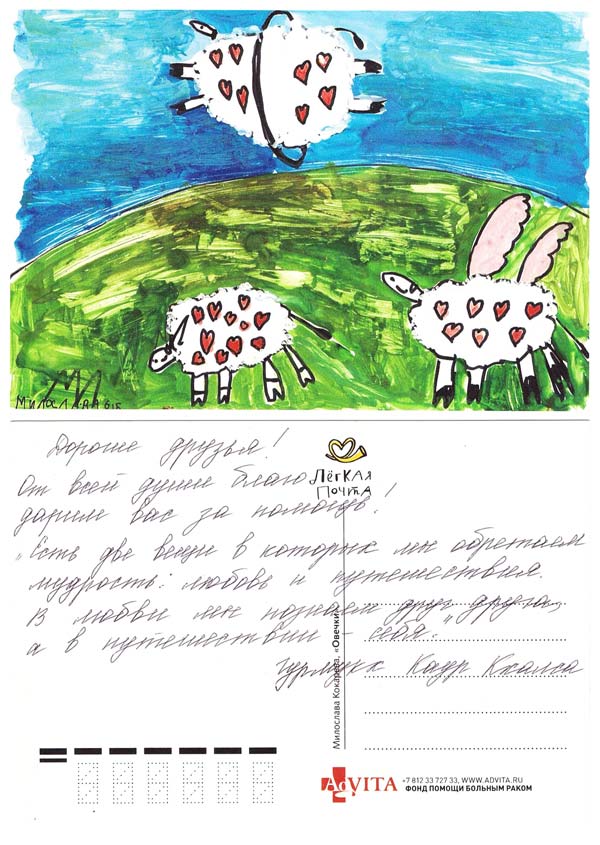 МИЛАЛАВА 6 Б
Дорогие друзья!
От всей души благо
дарим вас за помощь!
ЛЁГКАЯ
ПОЧТА
"Есть две вещи в которых мы обретаем
мудрость: любовь и путешествия.
В любви мы познаем друг друга,
а в путешествии - себя."
Гурмукх Каур Кхалса
Милослава Кокарева, «Овечки»
AdVITA
+7 812 33 727 33, WWW.ADVITA.RU
ФОНД ПОМОЩИ БОЛЬНЫМ РАКОМ